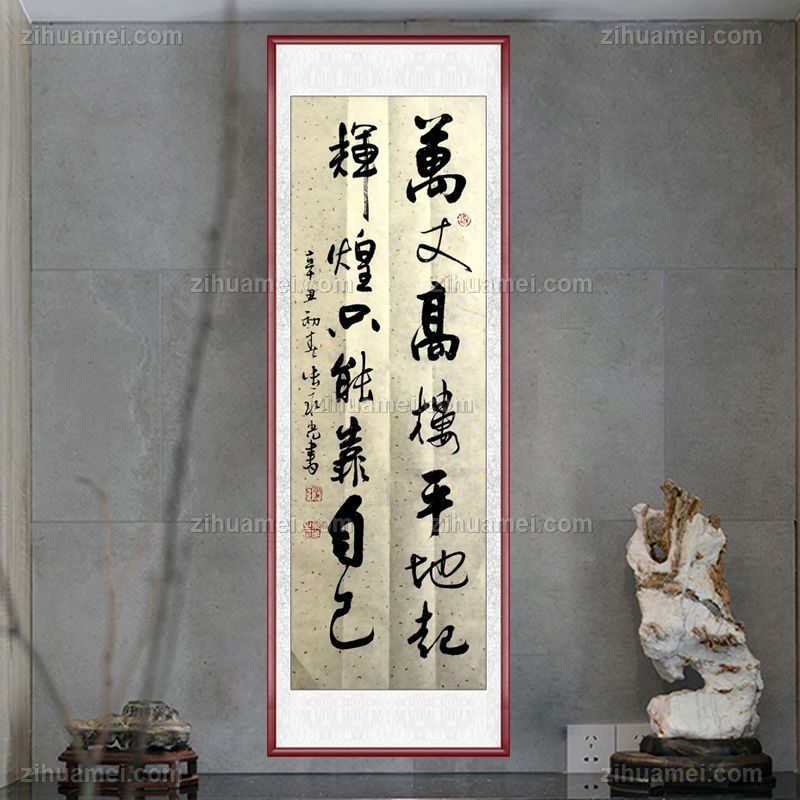 萬丈高樓平地起
輝煌只能靠自己
辛丑初春
書
zihuamei.com
zihuamei.com
zihuamei.com
zihuamei.com
zihuamei.com
zihuamei.com
zihuamei.com
zihuamei.com
zihuamei.com